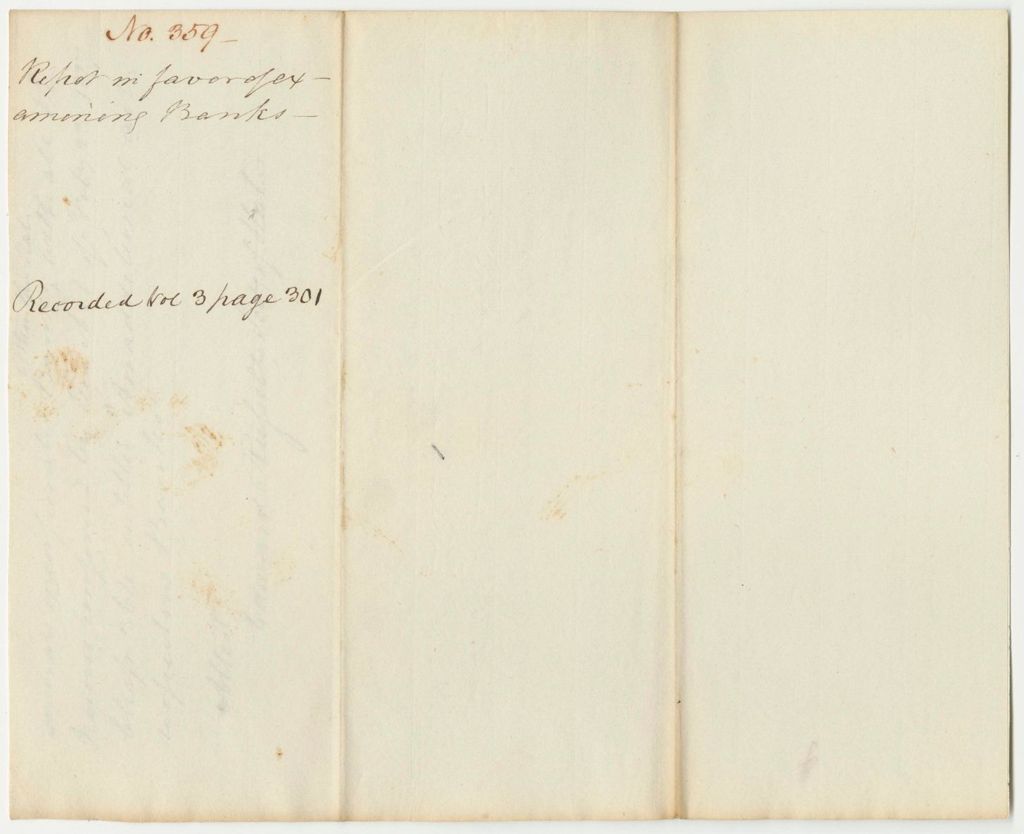 No. 359 —
Repot in favor of ex —
amining Banks —
Recorded Vol 3 page 301